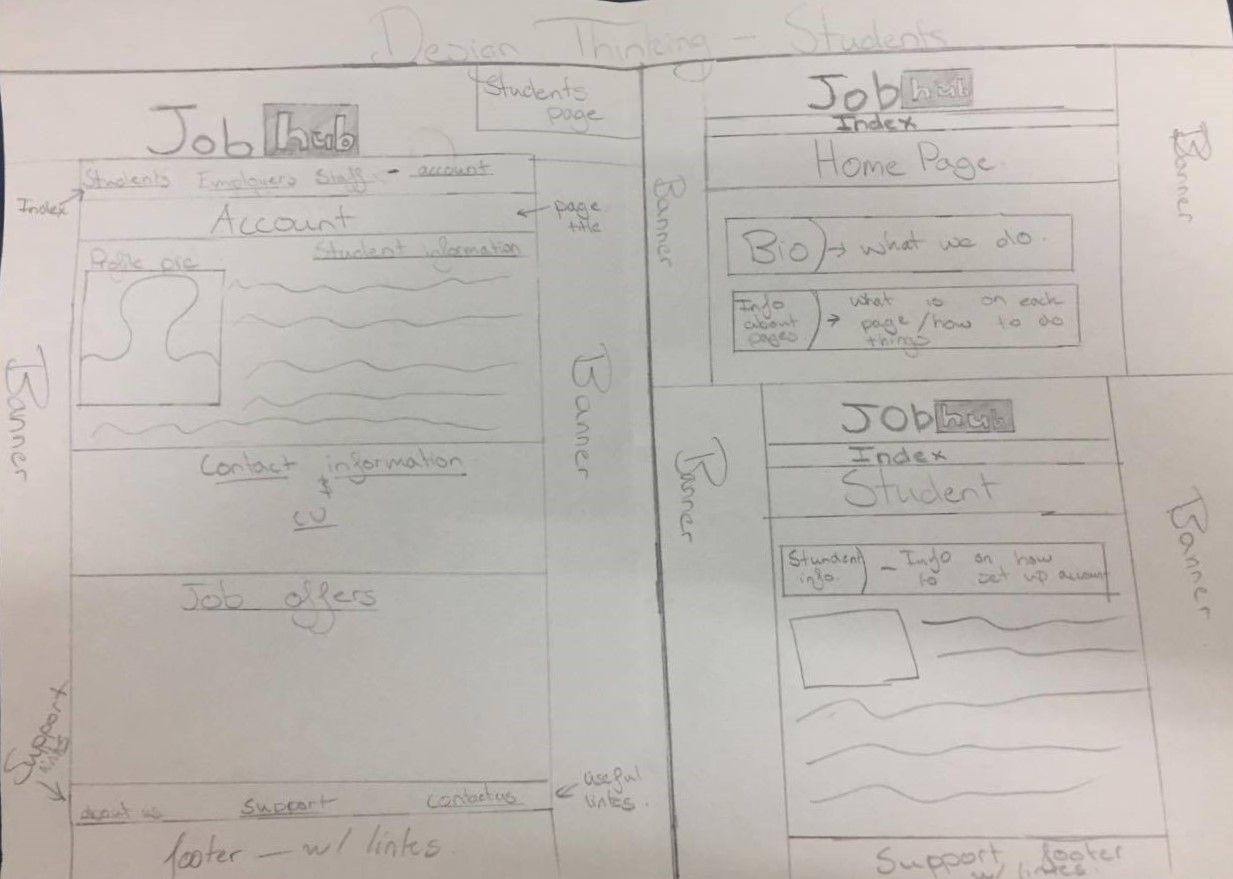 Design Thinking - Students
Students
page
Job hub
Students Employers Staff - account
Index
Account
page
title
Profile pic
Student information
Banner
Banner
Contact information
&
CV
Job offers
Support
links
about us Support contact us
useful
links.
footer - w/ links.
Job hub
Index
Home Page.
Banner
Banner
Bio → what we do.
Info
about
pages
→ what is on each
page/how to do
things
Job hub
Index
Student
Banner
Banner
Stundent
info.
- Info on how
to set up account
Support footer
w/ links